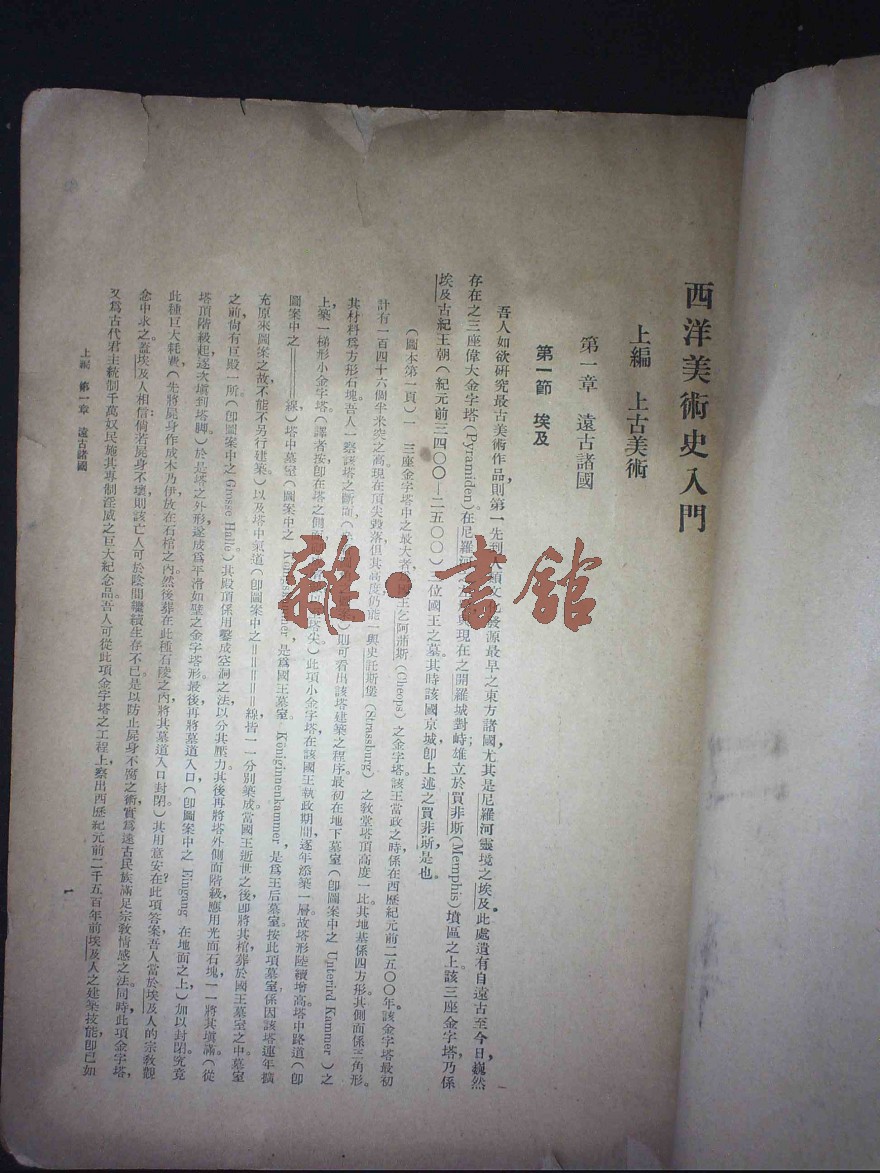 西洋美術史入門
上編 上古美術
第一章 遠古諸國
第一節 埃及
吾人如欲研究最古美術作品,則第一先到人類文化發源最早之東方諸國,尤其是尼羅河靈境之埃及。此處遺有自遠古至今日巍然
存在之三座偉大金字塔(Pyramiden)。在尼羅河與現在之開羅城對峙;雄立於買非斯(Memphis)墳區之上。該三座金字塔,乃係
埃及古紀王朝(紀元前三四〇〇—二五〇〇)三位國王之墓。其時該國京城,卽上述之買非斯是也。
(圖本第一頁)一 三座金字塔中之最大者,王乞阿浦斯(Cheops)之金字塔。該王當政之時,係在西歷紀元前二五〇〇年。該金字塔最初
計有一百四十六個半米突之高。現在頂尖毀落,但其高度仍能與史託斯堡(Strassburg)之敎堂塔頂高度一比。其地基係四方形。其側面係三角形。
其材料爲方形石塊。吾人一察該塔之斷面,則可看出該塔建築之程序。最初在地下墓室(卽圖案中之 Unterird Kammer)之
上,築一梯形小金字塔。(譯者按卽在塔之側塔尖)此項小金字塔,在該國王執政期間,逐年添築一層。故塔形陸續增高。塔中路道(卽
圖案中之————線)塔中墓室(圖案中之 是爲國王墓室。Königinnenkammer,是爲王后墓室。按此項墓室,係因該塔連年擴
充原來圖案之故,不能不另行建築。)以及塔中氣道(卽圖案中之=====線)皆一一分別築成。當國王逝世之後,卽將其棺葬於國王墓室之中。墓室
之前,尙有巨殿一所。(卽圖案中之 Grosse Halle)其殿頂係用鑿成空洞之法,以分其壓力。其後再將塔外側面階級,應用光面石塊,一一將其塡滿。(從
塔頂階級起,逐次塡到塔脚)於是塔之外形,遂成爲平滑如壁之金字塔形。最後再將墓道入口(卽圖案中之 Eingang 在地面之上)加以封閉。究竟
此種巨大耗費,(先將屍身作成木乃伊,放在石棺之內,然後葬在此種石陵之內,將其墓道入口封閉。)其用意安在?此項答案,吾人當於埃及人的宗敎觀
念中求之。蓋埃及人相信:倘若屍身不壞,則該亡人可於陰間繼續生存不已。是以防止屍身不腐之術,實爲遠古民族滿足宗敎情感之法。同時,此項金字塔,
又爲古代君主統制千萬奴民,施其專制淫威之巨大紀念品。吾人可從此項金字塔之工程上,察出西歷紀元前二千五百年前埃及人之建築技能,卽已如
上編 第一章 遠古諸國
1
雜·書舘